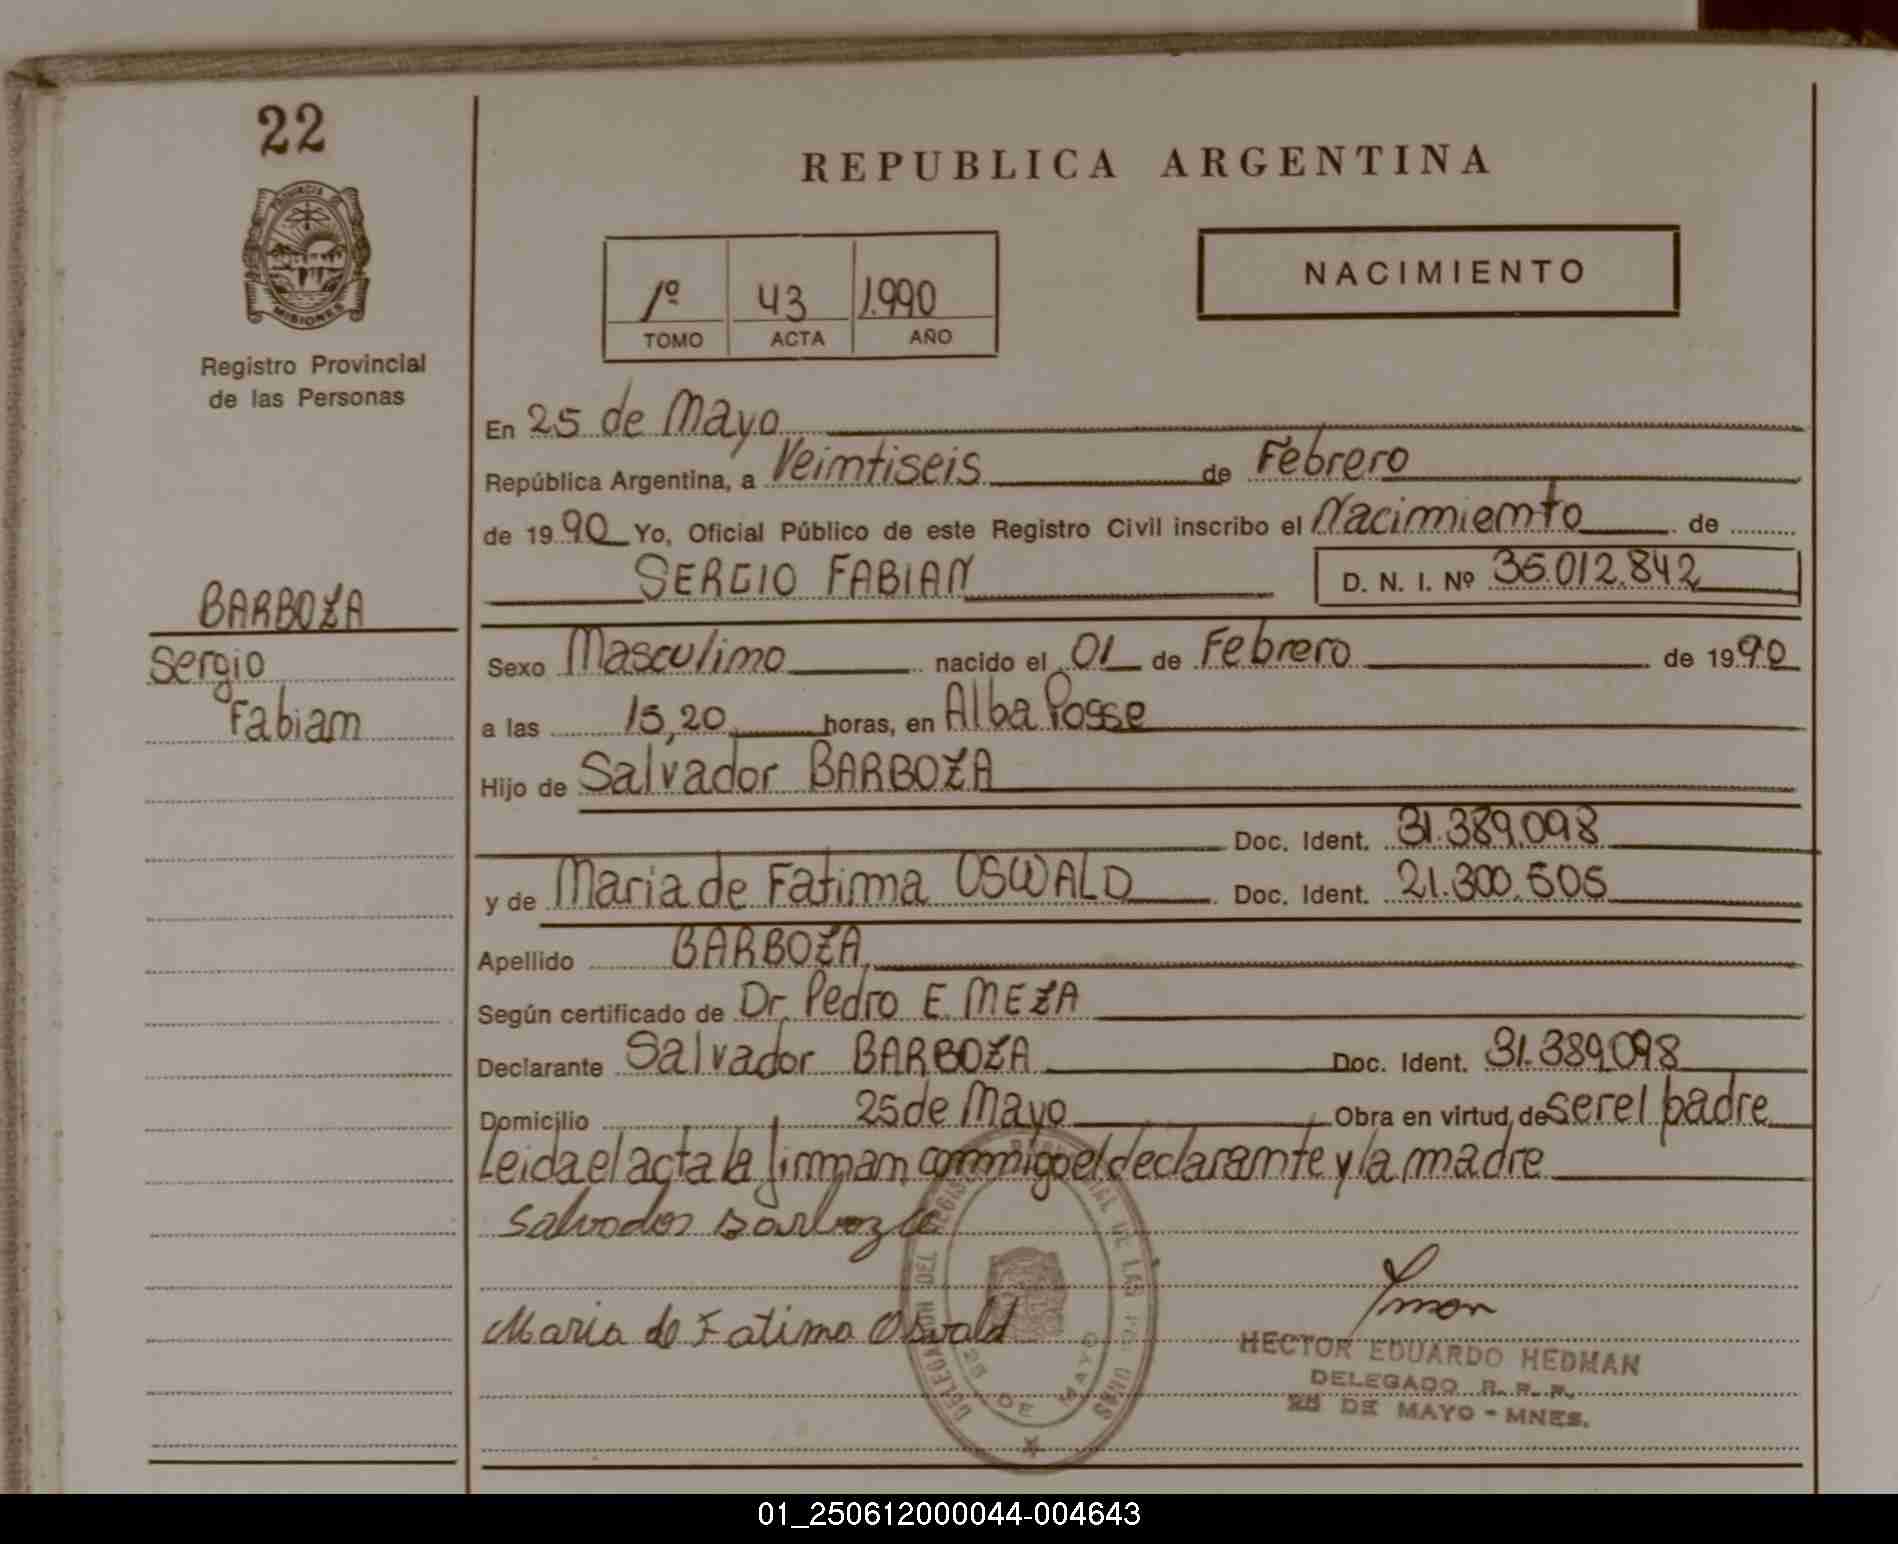 22
REPUBLICA ARGENTINA
PROVINCIA
MISIONES
Registro Provincial
de las Personas
1º 43 1.990
TOMO ACTA AÑO
NACIMIENTO
En 25 de Mayo
República Argentina, a Veimtiseis de Febrero
de 19 90 Yo, Oficial Público de este Registro Civil inscribo el Nacimiemto de
SERGIO FABIAN D. N. I. Nº 35.012.842
BARBOZA
Sergio
Fabiam
Sexo Masculimo nacido el 01 de Febrero de 19 90
a las 15,20 horas, en Alba Posse
Hijo de Salvador BARBOZA
Doc. Ident. 31.389.098
y de Maria de Fatima OSWALD Doc. Ident. 21.300.505
Apellido BARBOZA
Según certificado de Dr. Pedro E. MEZA
Declarante Salvador BARBOZA Doc. Ident. 31.389.098
Domicilio 25 de Mayo Obra en virtud de ser el padre
Leida el acta la firmam commigo el declaramte y la madre
Salvador Barboza
Maria de Fatima Oswald
DELEGACION DEL REGISTRO PROVINCIAL DE LAS PERSONAS
25 DE MAYO
HECTOR EDUARDO HEDMAN
DELEGADO R. P. P.
25 DE MAYO - MNES.
01_250612000044-004643